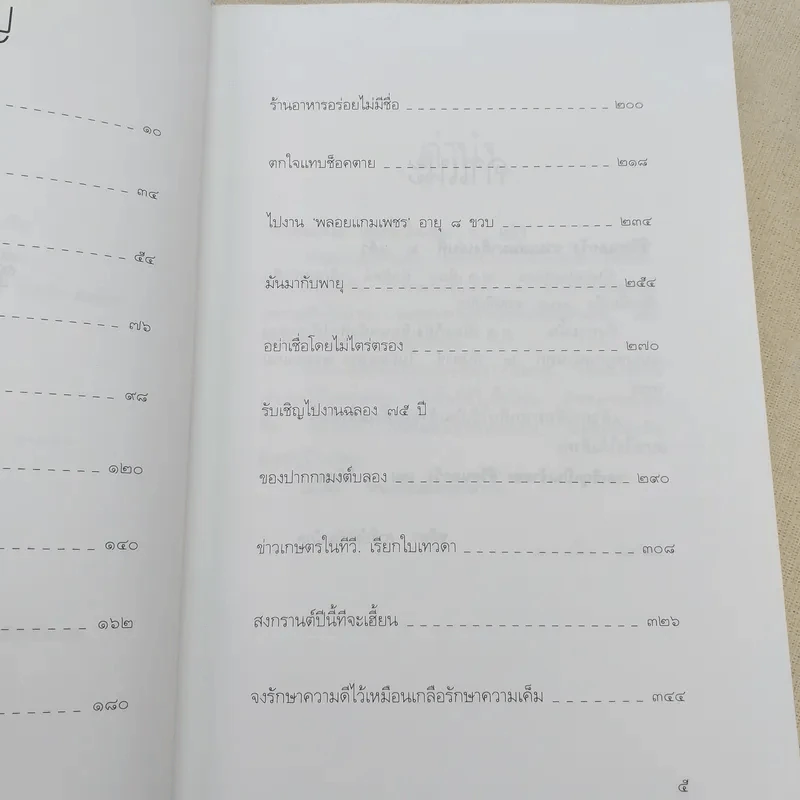 ญ
๑๐
๓๔
๕๔
๗๖
๙๘
๑๒๐
๑๔๐
๑๖๒
๑๘๐
ร้านอาหารอร่อยไม่มีชื่อ ๒๐๐
ตกใจแทบช็อคตาย ๒๑๘
ไปงาน 'พลอยแกมเพชร' อายุ ๘ ขวบ ๒๓๔
มันมากับพายุ ๒๕๔
อย่าเชื่อโดยไม่ไตร่ตรอง ๒๗๐
รับเชิญไปงานฉลอง ๗๕ ปี
ของปากกามงต์บลอง ๒๙๐
ข่าวเกษตรในทีวี. เรียกใบเทวดา ๓๐๘
สงกรานต์ปีนี้ทีจะเฮี้ยน ๓๒๖
จงรักษาความดีไว้เหมือนเกลือรักษาความเค็ม ๓๔๔
๕